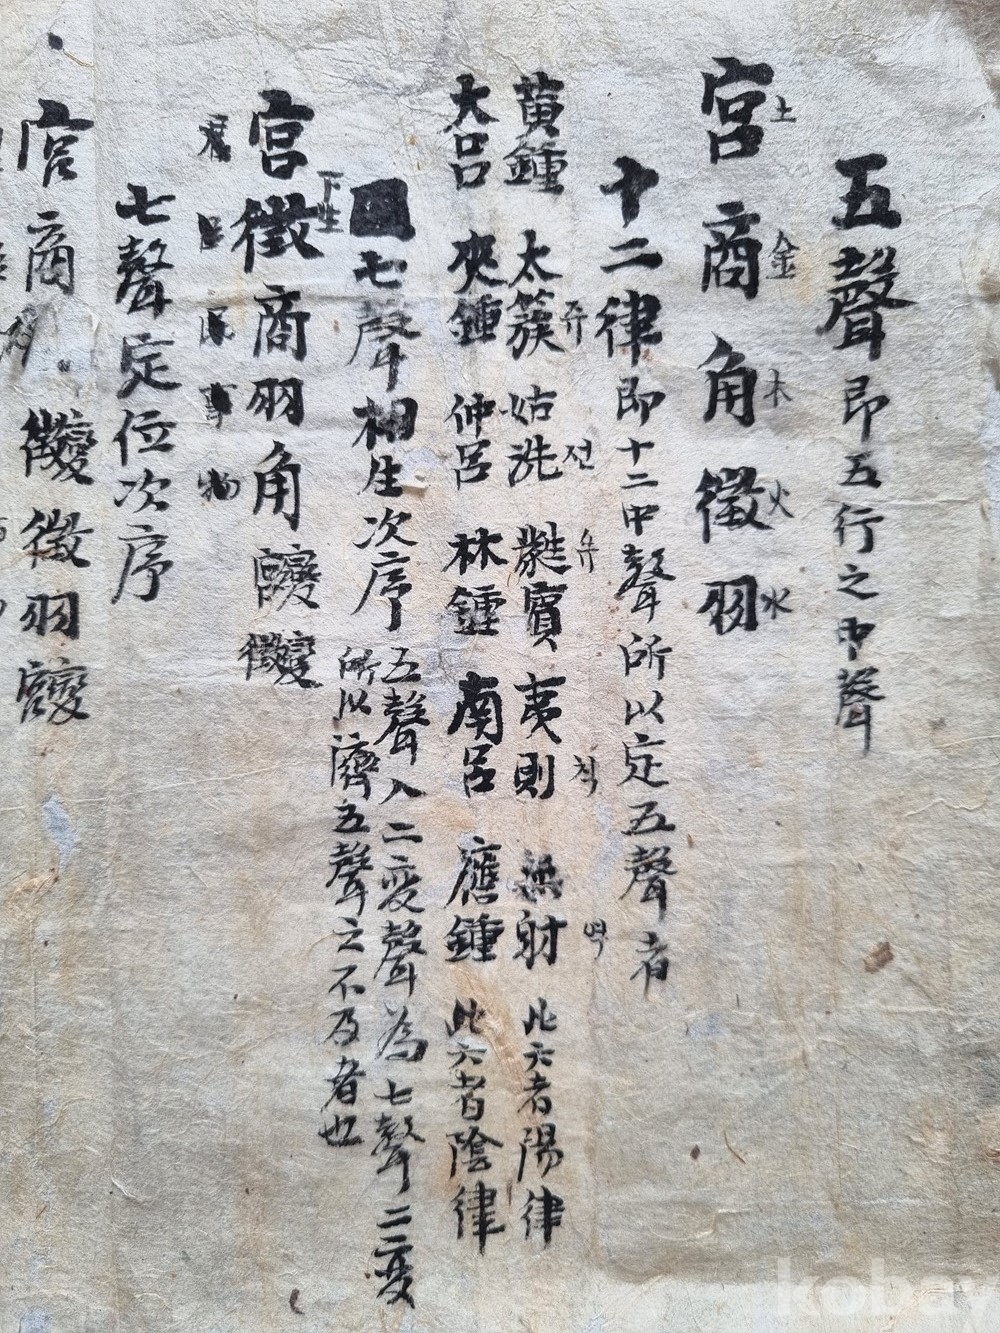 五聲即五行之中聲
宮土商金角木徵火羽水
十二律即十二中聲所以定五聲者
黃鍾 太簇주 姑洗전 蕤유賓 夷則칙 無射역 此六者陽律
大呂 夾鍾 仲呂 林鍾 南呂 應鍾 此六者陰律
七聲相生次序 五聲入二変聲為七聲二変
所以濟五聲之不及者也
下生
宮徵商羽角變宮變徵
君臣民事物
七聲定位次序
宮商角變徵徵羽變宮
kobay